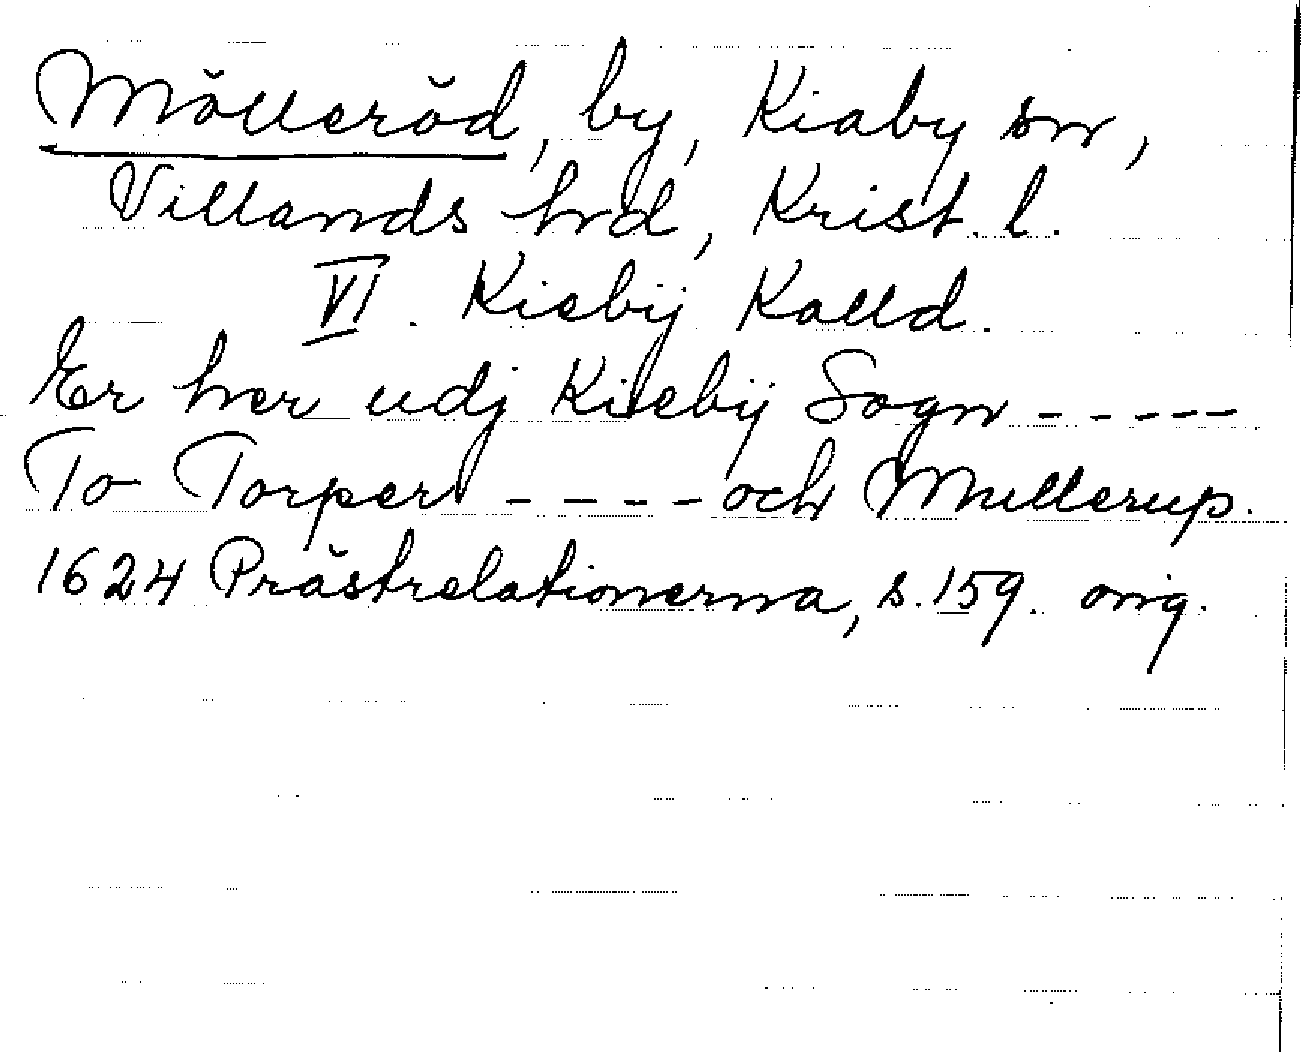 Mölleröd, by, Kiaby sn,
Villands hrd, Krist. l.
VI. Kiebÿ Kalld.
Er her udj Kieebÿ Sogn - - - - -
To Torper - - - - och Mullerup.
1624 Prästrelationerna, s. 159. orig.